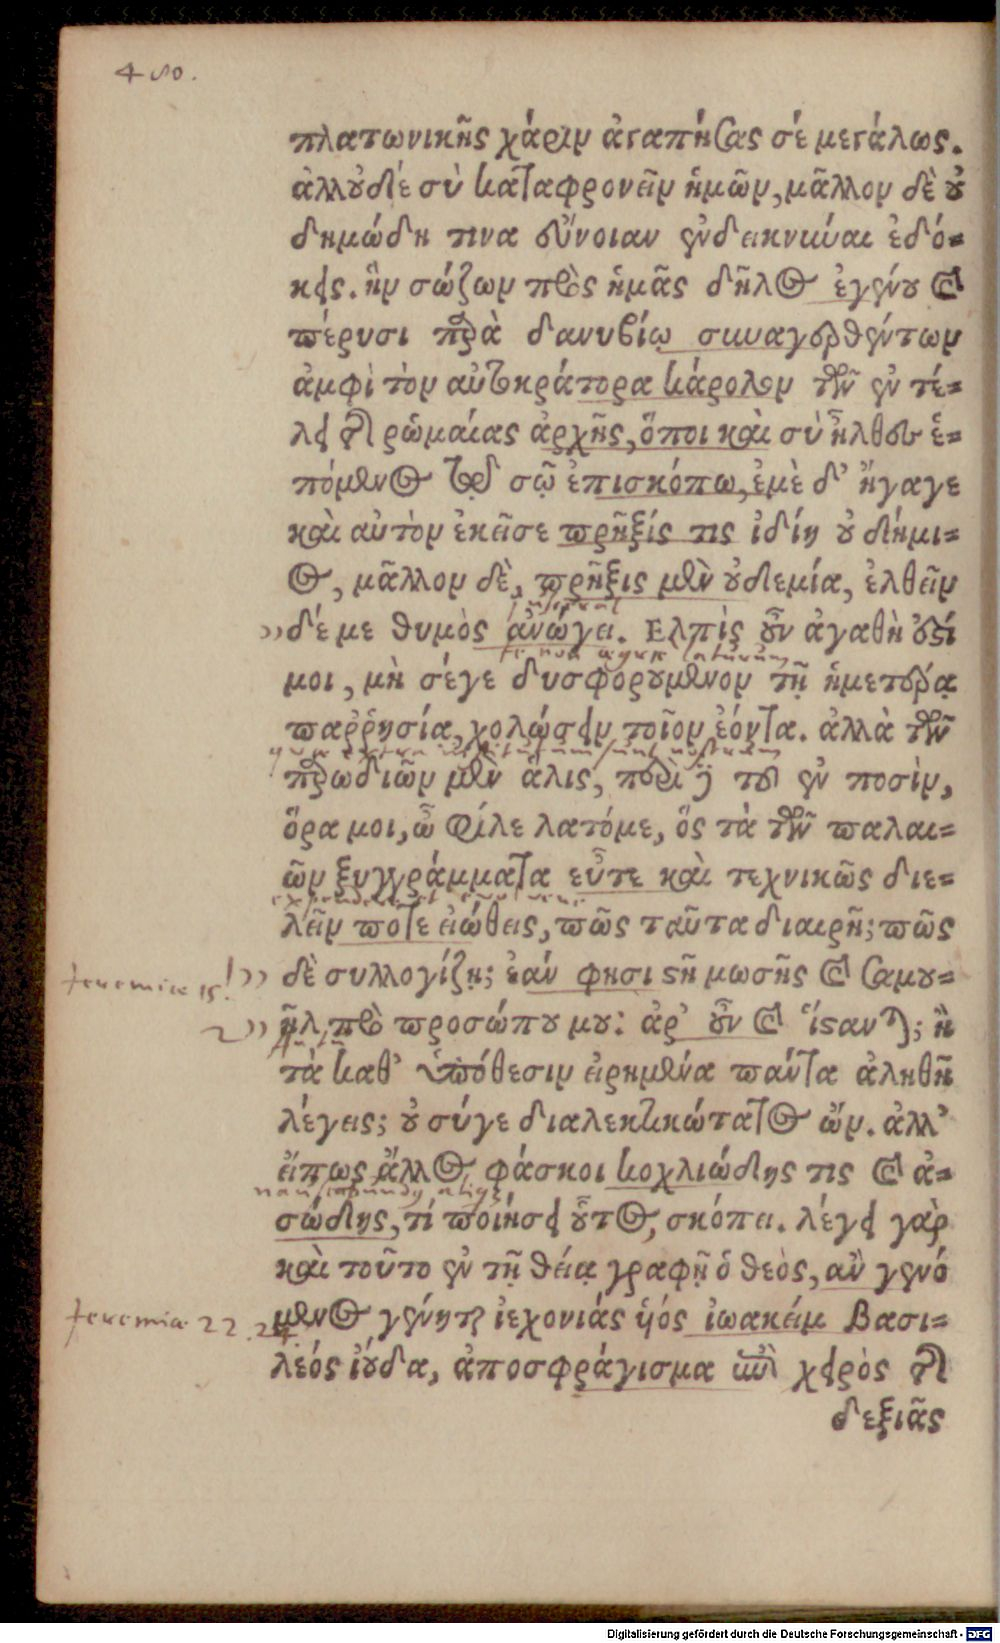 480.
πλατωνικῆς χάριν ἀγαπήσας σέ μεγάλως.
ἀλλ' οὐδέ σὺ καταφρονεῖν ἡμῶν, μᾶλλον δὲ οὐ
δημώδη τινα εὔνοιαν ἐνδεικνύναι ἐδό=
κεις. ἣν σώζων πρὸς ἡμᾶς δῆλος ἐγένου καὶ
πέρυσι παρὰ δανυβίῳ συναγερθέντων
ἀμφὶ τὸν αὐτοκράτορα κάρολον τῶν ἐν τέ=
λει τῆς ῥωμαίας ἀρχῆς, ὅποι καὶ σὺ ἦλθες ἑ=
πόμενος τῷ σῷ ἐπισκόπω, ἐμὲ δ' ἤγαγε
καὶ αὐτὸν ἐκεῖσε πρῆξίς τις ἰδίη οὐ δήμι=
ος, μᾶλλον δὲ, πρῆξις μὲν οὐδεμία, ἐλθεῖν
»δέ με θυμὸς ἀνώγει. Ελπὶς οὖν ἀγαθὴ ἐστί
te non aegre laturum
μοι, μὴ σέγε δυσφορούμενον τῇ ἡμετέρᾳ
παῤῥησίᾳ, χολώσειν τοῖον ἐόντα. ἀλλὰ τῶν
quae extra institutum sunt nostrum
παρῳδιῶν μὲν ἅλις, περὶ δὲ τοῦ ἐν ποσὶν,
ὅρα μοι, ὦ φίλε λατόμε, ὅς τὰ τῶν παλαι=
ῶν ξυγγράμματα εὖτε καὶ τεχνικῶς διε=
λεῖν ποτε εἰώθεις, πῶς ταῦτα διαιρῇ; πῶς
Jeremiae 15. »δὲ συλλογίζῃ; ἐάν φησι στῇ μωσῆς καὶ σαμου=
»ὴλ πρὸ προσώπου μου: ἀρ' οὖν καὶ ἵστανται; ἢ
τὰ καθ' ὑπόθεσιν εἰρημένα πάντα ἀληθῆ
λέγεις; οὐ σύγε διαλεκτικώτατος ὤν. ἀλλ'
εἴπως ἄλλος φάσκοι κοχλιώδης τις καὶ ἀ=
σώδης, τί ποιήσει οὗτος, σκόπει. λέγει γὰρ
καὶ τοῦτο ἐν τῇ θείᾳ γραφῇ ὁ θεὸς, ἂν γενό
Jeremia 22.24. μενος γένηται ἰεχονιάς ὑός ἰωακείμ βασι=
λεός ἰούδα, ἀποσφράγισμα ἐπὶ χειρὸς τῆς
δεξιᾶς
Digitalisierung gefördert durch die Deutsche Forschungsgemeinschaft - DFG